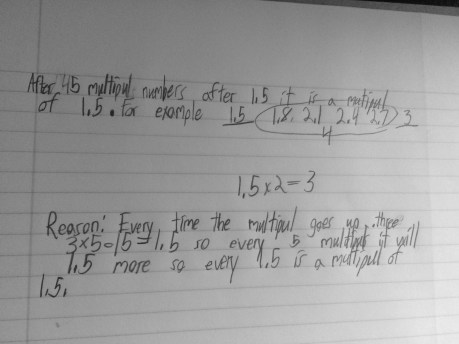 After 45 multipul numbers after 1.5 it is a multipul
of 1.5. for example 1.5 1.8, 2.1 2.4 2.7 3
4
1.5x2=3
Reason: Every time the multipul goes up .three
3x5=15=1.5 so every 5 multipul it
1.5 more so every 1.5 is a multipull of
1.5.